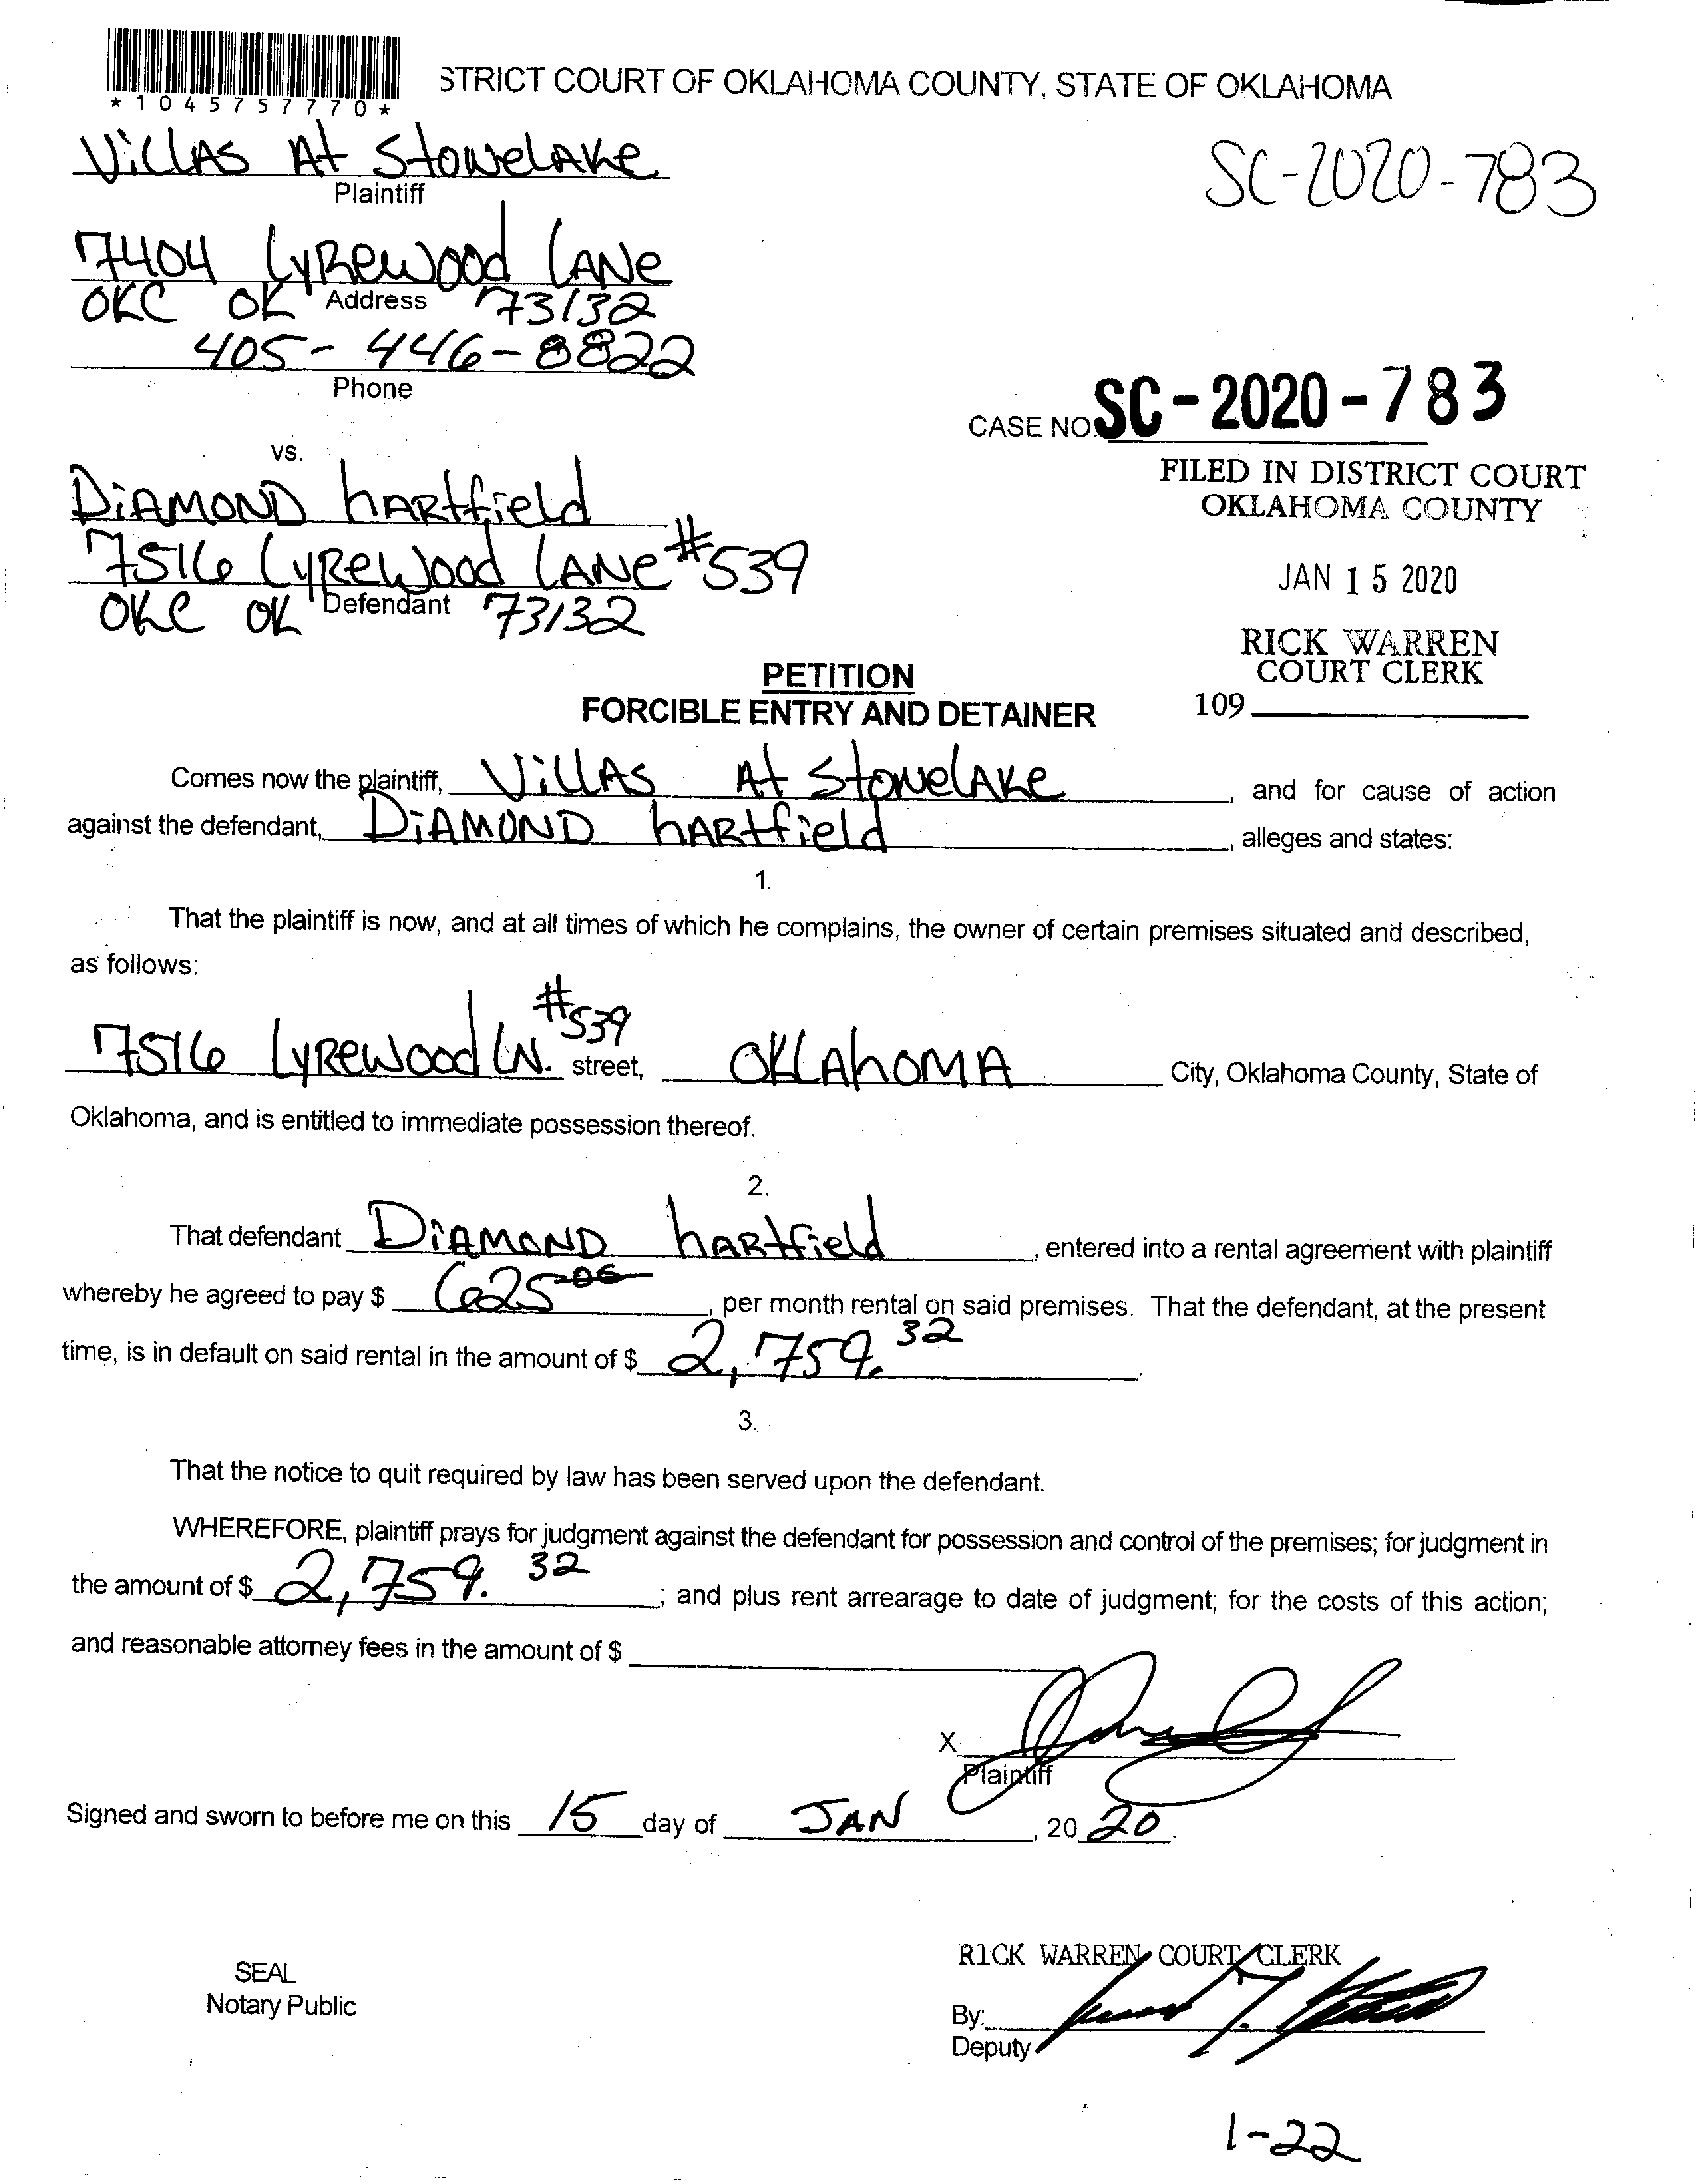 *1045757770*
STRICT COURT OF OKLAHOMA COUNTY, STATE OF OKLAHOMA
ViLLAS At StoweLAke
Plaintiff
SC-2020-783
7404 LyRewood LANe
OKC OK Address 73132
405-446-8822
Phone
CASE NO. SC-2020-783
vs.
FILED IN DISTRICT COURT
OKLAHOMA COUNTY
DiAMOND hARtfield
7516 LyRewood LANe #539
OKC OK Defendant 73132
JAN 15 2020
RICK WARREN
COURT CLERK
109
PETITION
FORCIBLE ENTRY AND DETAINER
Comes now the plaintiff, ViLLAS At StoweLAke, and for cause of action
against the defendant, DiAMOND hARtfield, alleges and states:
1.
That the plaintiff is now, and at all times of which he complains, the owner of certain premises situated and described,
as follows:
7516 LyRewood LN. #539 street, OKLAhOMA City, Oklahoma County, State of
Oklahoma, and is entitled to immediate possession thereof.
2.
That defendant DiAMOND hARtfield, entered into a rental agreement with plaintiff
whereby he agreed to pay $ 625.00, per month rental on said premises. That the defendant, at the present
time, is in default on said rental in the amount of $ 2,759.32.
3.
That the notice to quit required by law has been served upon the defendant.
WHEREFORE, plaintiff prays for judgment against the defendant for possession and control of the premises; for judgment in
the amount of $ 2,759.32; and plus rent arrearage to date of judgment; for the costs of this action;
and reasonable attorney fees in the amount of $
X
Plaintiff
Signed and sworn to before me on this 15 day of JAN, 2020.
RICK WARREN COURT CLERK
SEAL
Notary Public
By:
Deputy
1-22